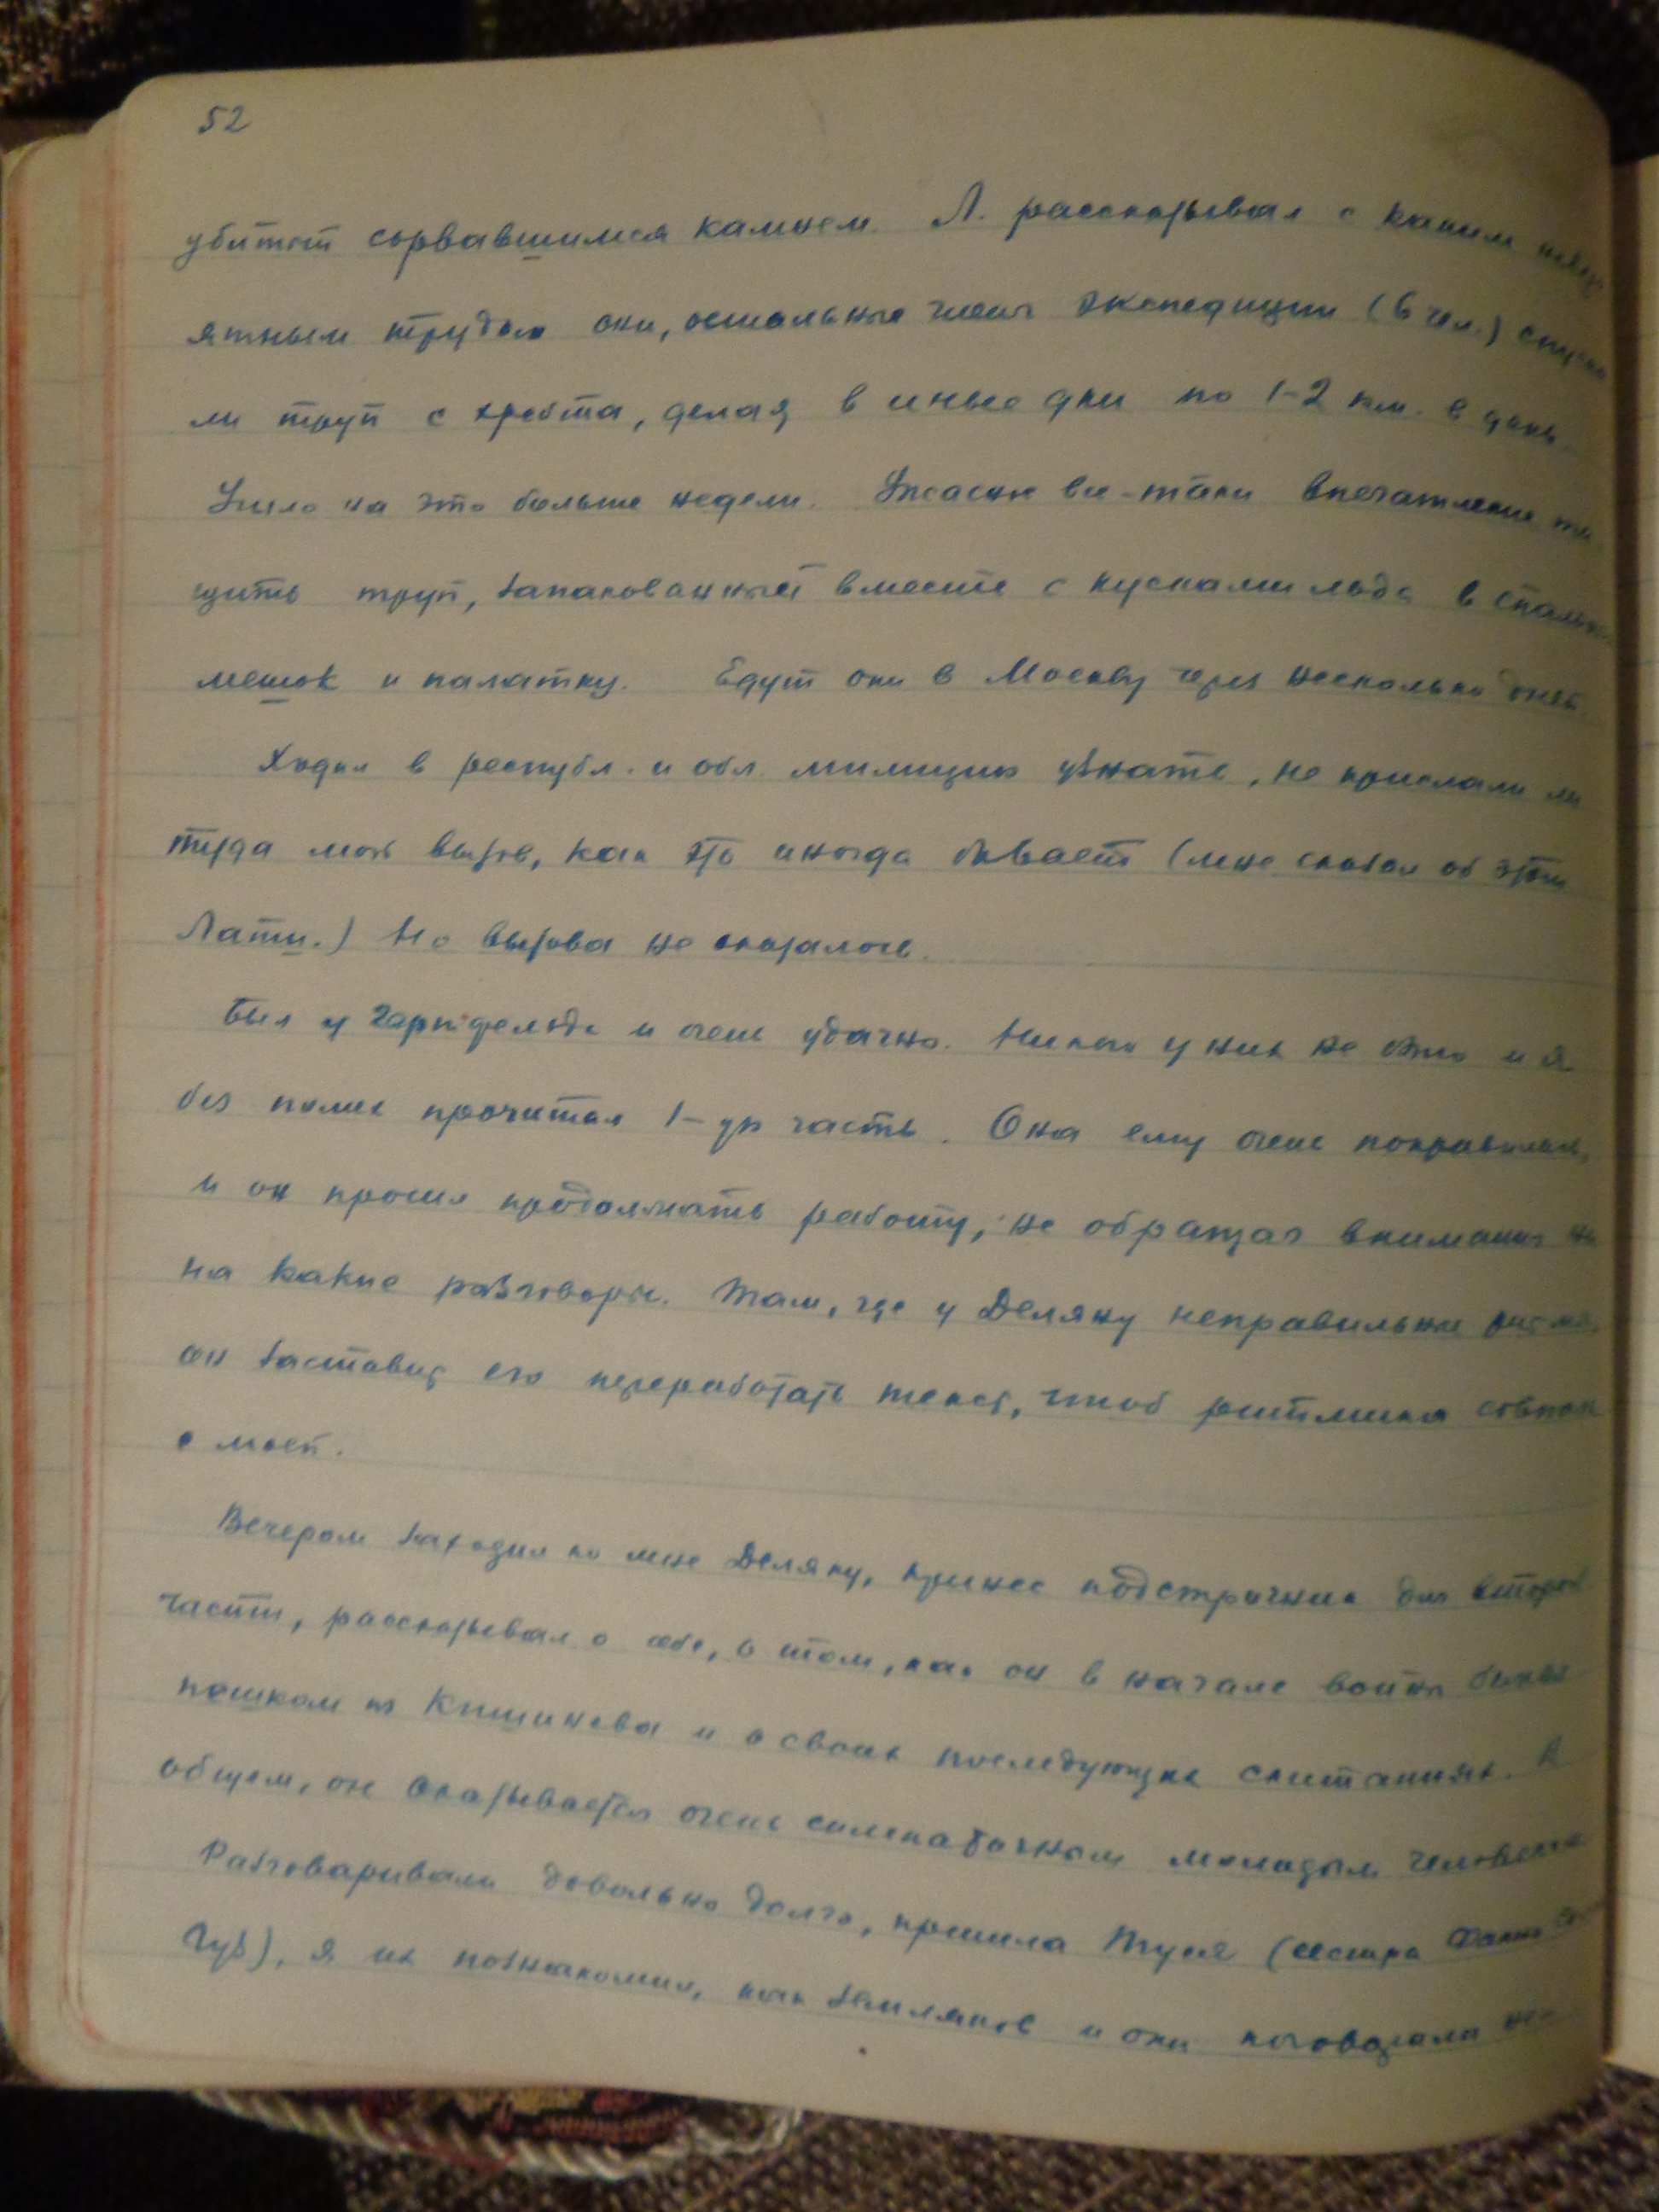 52
убитого сорвавшимся камнем. Л. рассказывал с каким неверо
ятным трудом они, остальные члены экспедиции (6 чел.) спуска
ли труп с хребта, делая в иные дни по 1-2 км. в день.
Ушло на это больше недели. Ужасное все-таки впечатление та
щить труп, запакованный вместе с кусками льда в спальный
мешок и палатку. Едут они в Москву через несколько дней.
Ходил в республ. и обл. милицию узнать, не прислали ли
туда мой вызов, как это иногда бывает (мне сказал об этом
Лати.) Но вызова не оказалось.
Был у Гершфельда и очень удачно. Никого у них не было и я
без помех прочитал 1-ую часть. Она ему очень понравилась,
и он просил продолжать работу, не обращая внимания ни
на какие разговоры. Там, где у Деляну неправильные
он заставит его переработать текст, чтоб ритмика совпала
с моей.
Вечером заходил ко мне Деляну, принес подстрочник для второй
части, рассказывал о себе, о том, как он в начале войны бежал
пешком из Кишинева и о своих последующих скитаниях. В
общем, он оказывается очень симпатичным молодым человеком.
Разговаривали довольно долго, пришла Туся (сестра Фани
Гуз), я их познакомил, как земляков и они поговорили не-